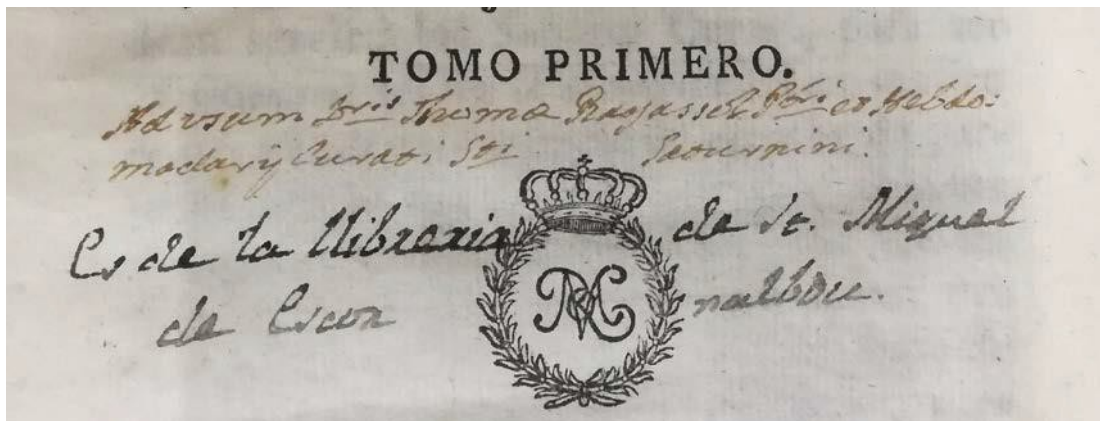 TOMO PRIMERO.
Ad usum Dris Thomæ Ragassol Pbri et Hebdo:
madarij Curati Sti Saturnini.
Es de la llibreria de St. Miquel
de Escor nalbou.